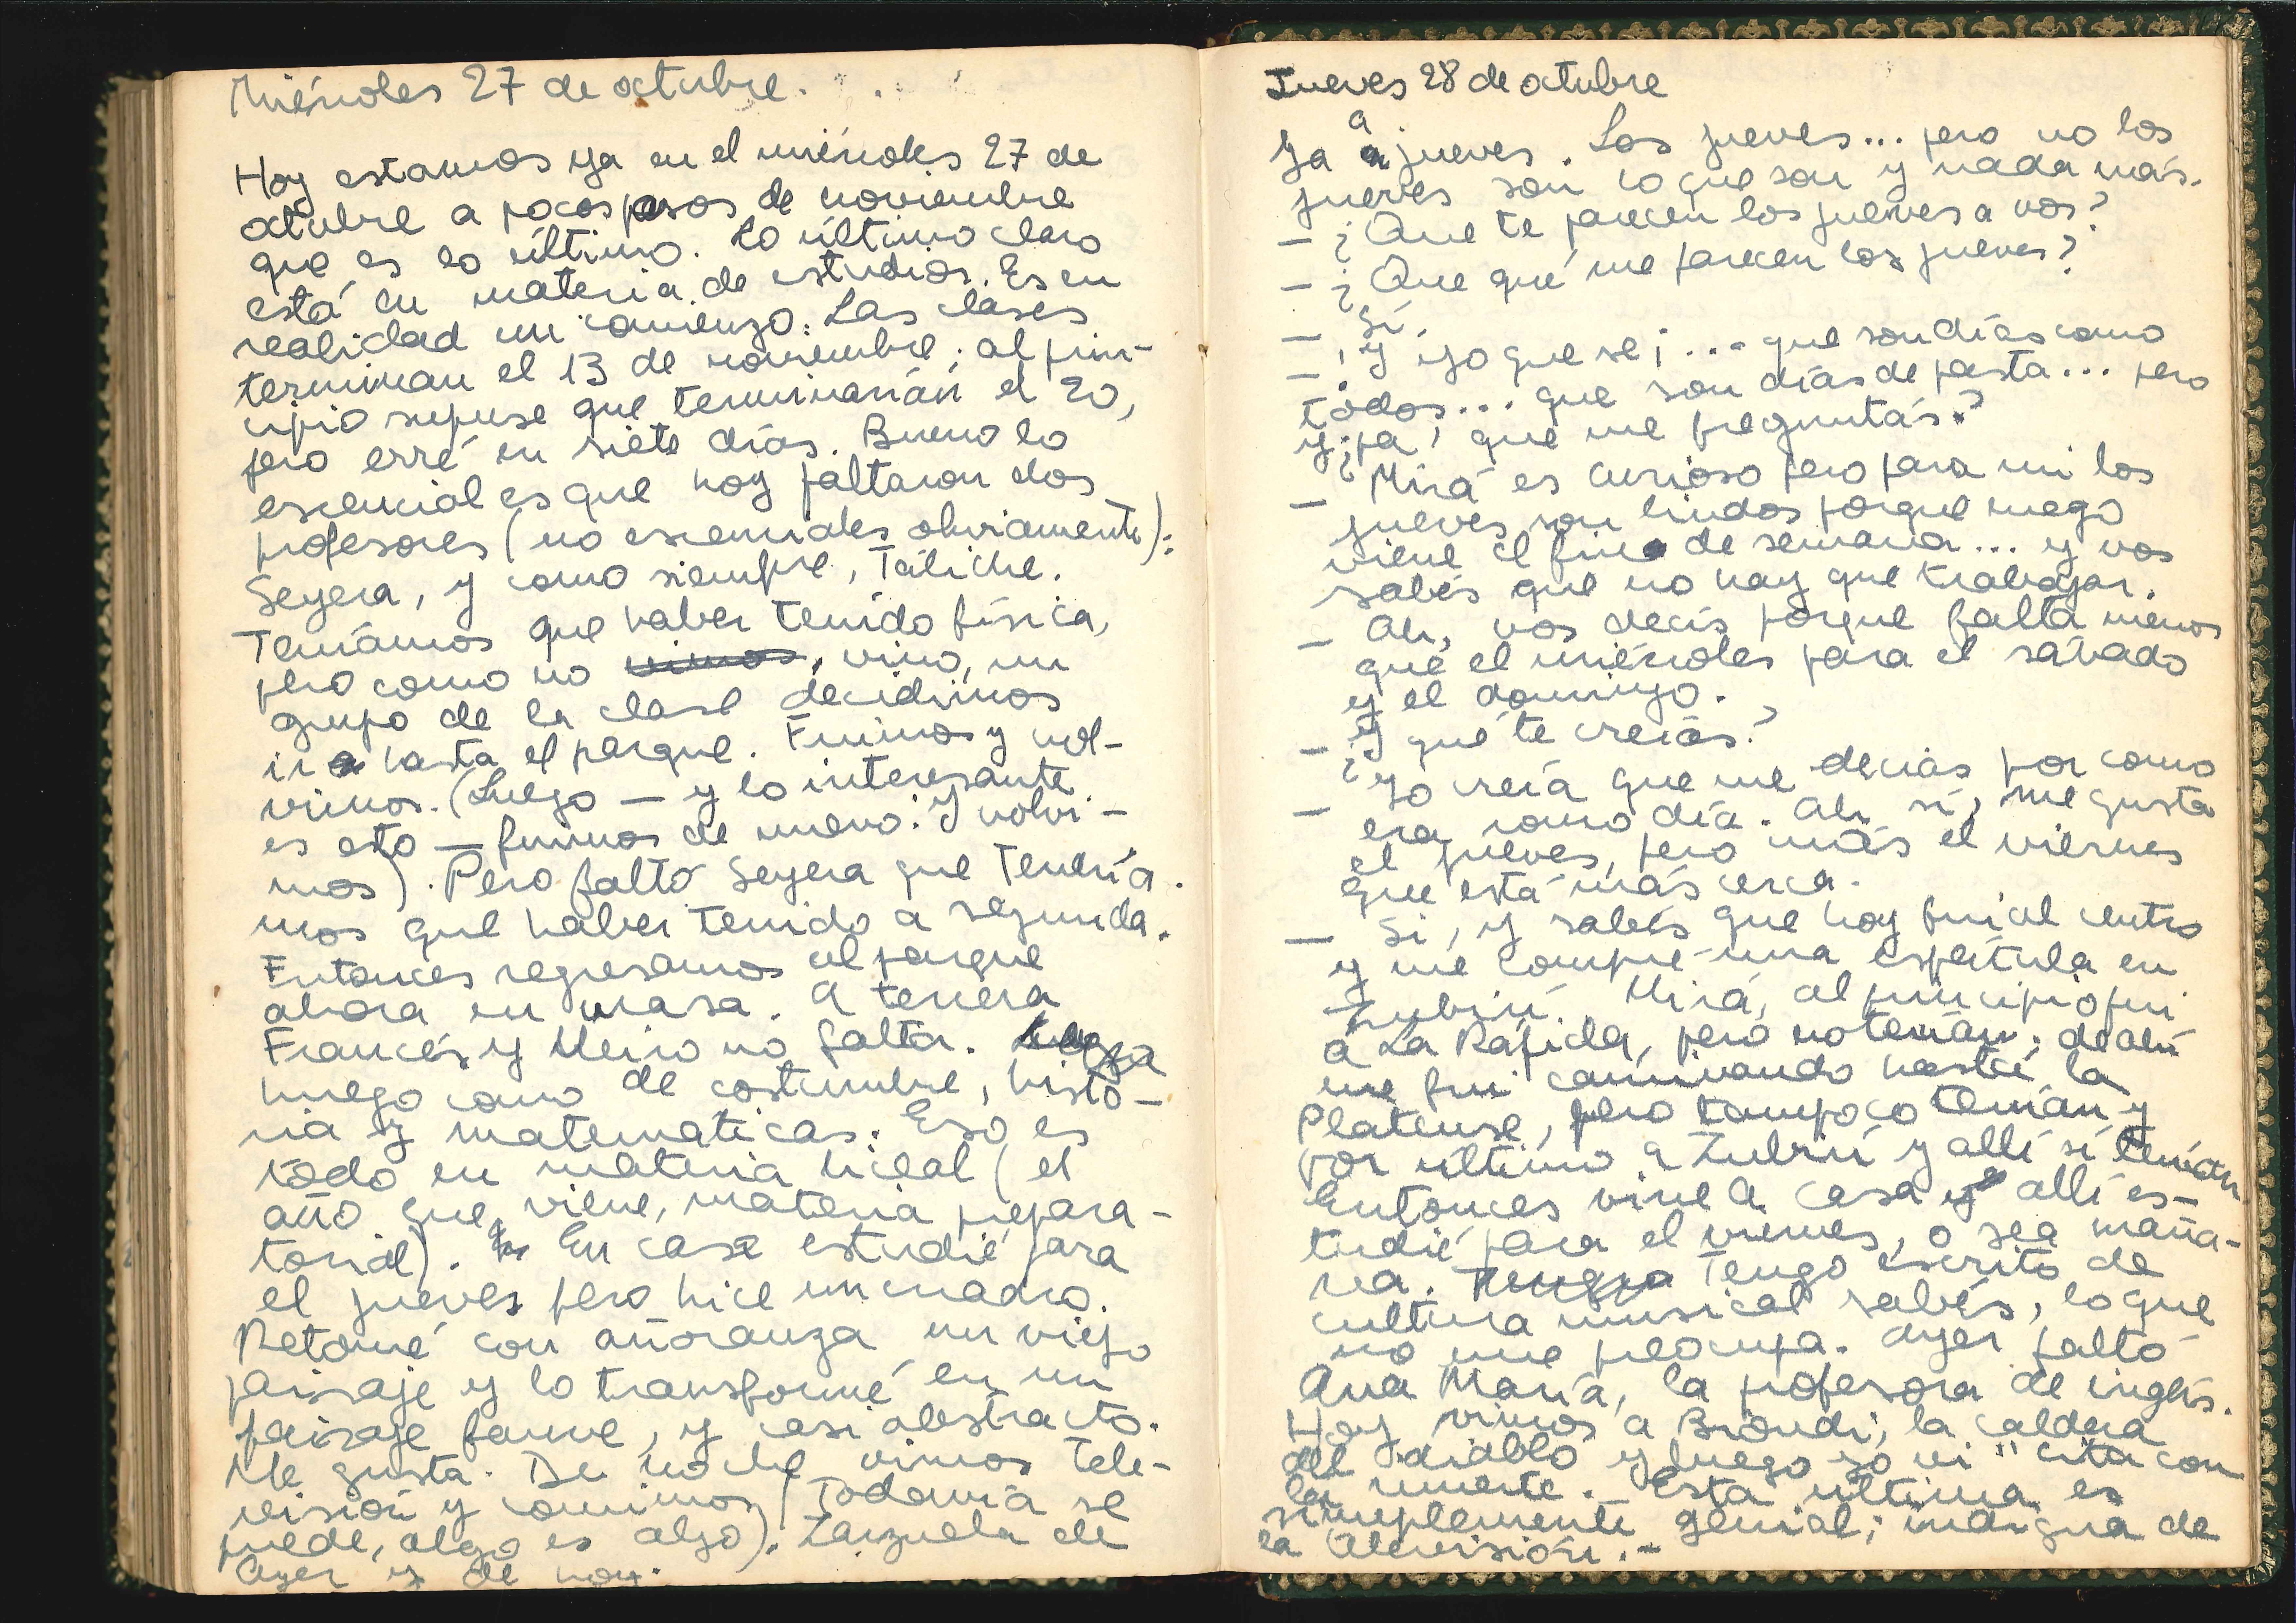 Miércoles 27 de octubre.
Hoy estamos ya en el miércoles 27 de
octubre a pocos pasos de noviembre
que es lo último. Lo último claro
está en materia de estudios. Es en
realidad un comienzo. Las clases
terminan el 13 de noviembre; al prin-
cipio supuse que terminarían el 20,
pero erré en siete días. Bueno lo
escencial es que hoy faltaron dos
profesores (no escenciales obviamente):
Seyera, y como siempre, Táliche.
Teníamos que haber tenido física,
pero como no vimos, vino, un
grupo de la clase decidimos
ir a hasta el parque. Fuimos y vol-
vimos. (Luego — y lo interesante
es esto — fuimos de nuevo. Y volvi-
mos). Pero faltó Seyera que tendría-
mos que haber tenido a segunda.
Entonces regresamos al parque
ahora en masa. A tercera
Francés y Meiro no falta.
luego como de costumbre, histo-
ria y matemáticas. Eso es
todo en materia liceal (el
año que viene, materia prepara-
torial). En casa estudié para
el jueves pero hice un cuadro.
Retomé con añoranza un viejo
paisaje y lo transformé en un
paisaje fauve, y casi abstracto.
Me gusta. De noche vimos tele-
visión y comimos (Todavía se
puede, algo es algo). Zarzuela de
Ayer y de hoy.
Jueves 28 de octubre
Ya a jueves. Los jueves... pero no los
jueves son lo que son y nada más.
— ¿Que te parecen los jueves a vos?
— ¿Que qué me parecen los jueves?
— Sí.
— ¡Y yo que se¡... que son días como
todos... que son días de pasta... pero
y ¿pa' qué me preguntás?
— Mirá es curioso pero para mi los
jueves son lindos porque luego
viene el fin de semana... y vos
sabés que no hay que trabajar.
— Ah, vos decís porque falta menos
que el miércoles para el sábado
y el domingo.
— ¿Y qué te creías?
— Yo creía que me decías por como
era como día. Ah sí, me gusta
el jueves, pero más el viernes
que está más cerca.
— Si, y sabés que hoy fui al centro
y me compré una espátula en
Zubirí. Mirá, al principio fui
a La Rápida, pero no tenían; de ahí
me fui caminando hasta la
Platense, pero tampoco tenían y
por último a Zubirí y allí sí tenían.
Entonces vine a casa y allí es-
tudié para el viernes, o sea maña-
na. Tengo Tengo escrito de
cultura musical sabés, lo que
no me preocupa. Ayer faltó
Ana María, la profesora de inglés.
Hoy vimos a Biondi, la caldera
del diablo y luego yo vi "cita con
la muerte. Esta última es
simplemente genial; indigna de
la televisión.-